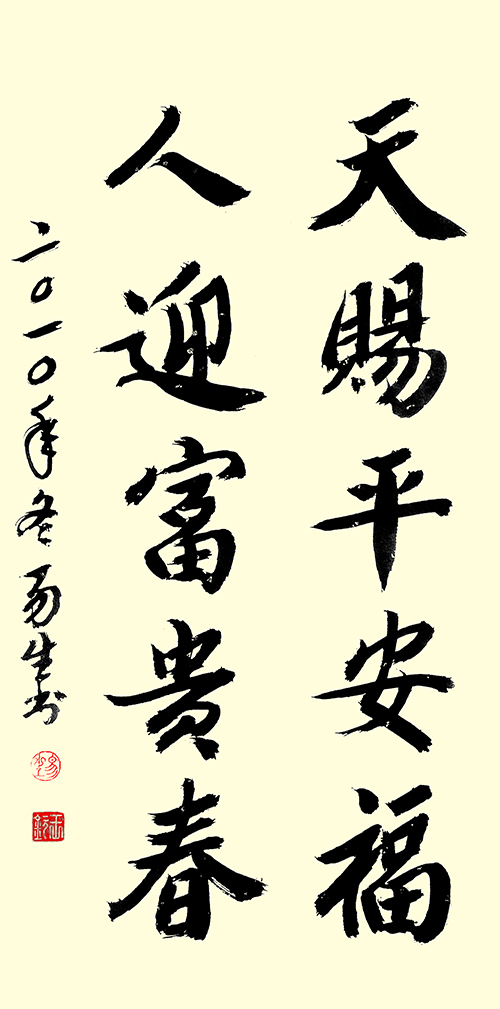 天赐平安福
人迎富贵春
二〇一〇年冬易生书